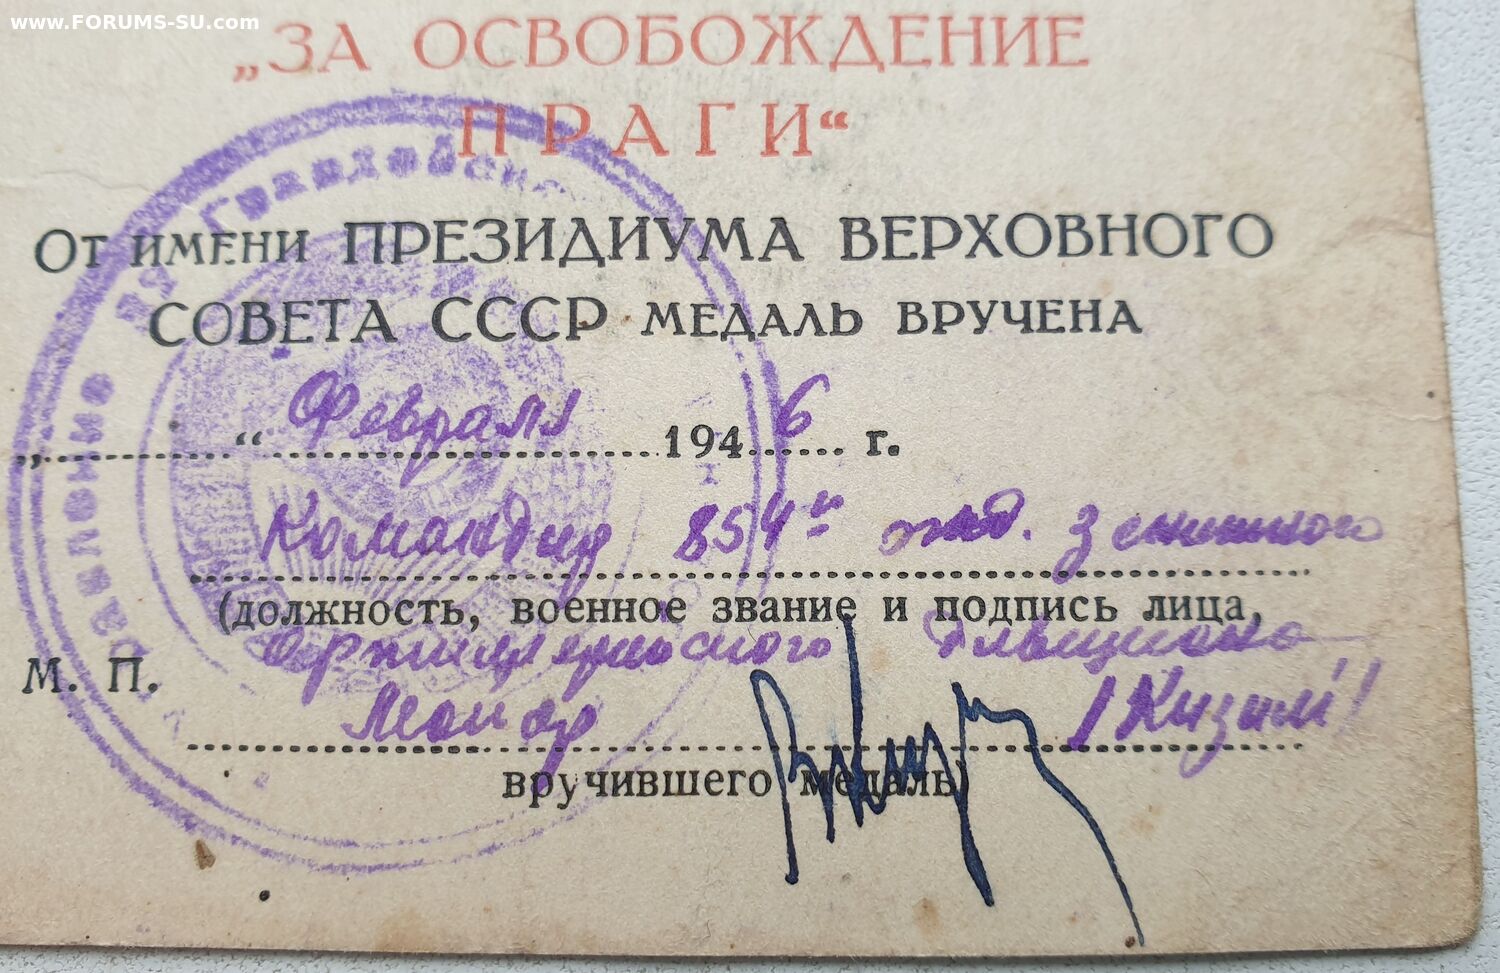 www.FORUMS-SU.com
„ЗА ОСВОБОЖДЕНИЕ
ПРАГИ“
От имени ПРЕЗИДИУМА ВЕРХОВНОГО
СОВЕТА СССР МЕДАЛЬ ВРУЧЕНА
„ “ Февраля 1946 г.
Командир 854го отд. зенитного
(должность, военное звание и подпись лица,
Артиллерийского Дивизиона
М. П.
Майор
вручившего медаль)